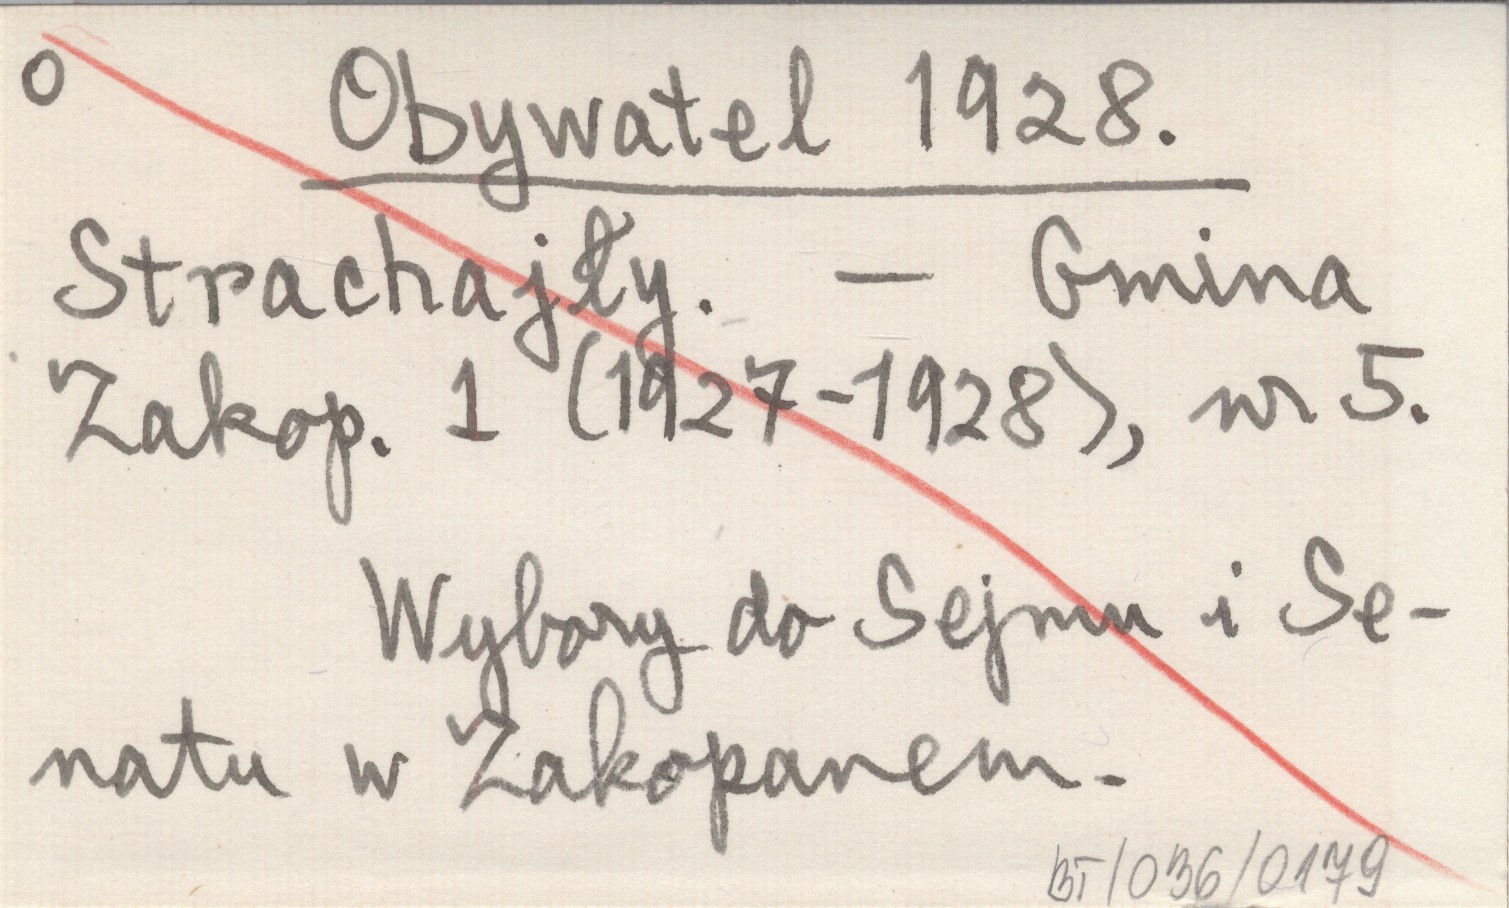 O
Obywatel 1928.
Strachajły. — Gmina
Zakop. 1 (1927-1928), nr 5.
Wybory do Sejmu i Se-
natu w Zakopanem.
BT/036/0179